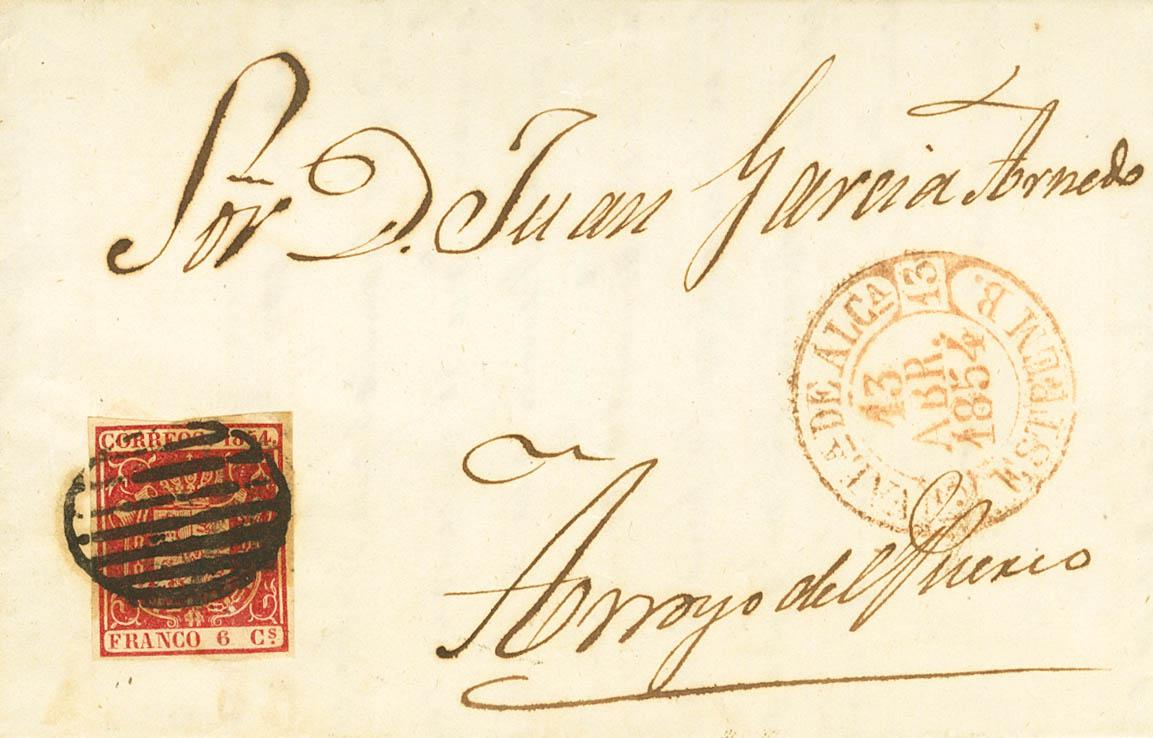 Sor. D. Juan Garcia Arnedo
VALA DE ALCA 13 ESTREM B.
13
ABR.
1854
CORREOS 1854.
FRANCO 6 Cs.
Arroyo del Puerco